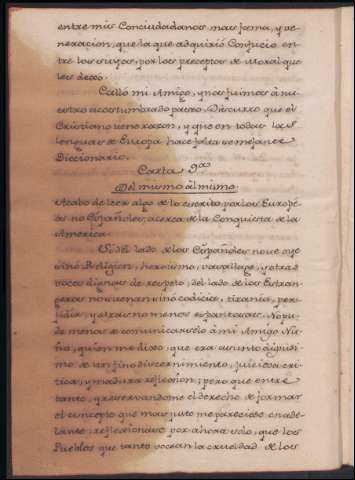 entre mis Conciudadanos mas fama, y ve-
neracion, que la que adquirió Confucio en-
tre los suyos, por los preceptos de Moral que
les dexó.
Calló mi Amigo, y nos fuimos à nu-
estro acostumbrado paseo. Discurro que el
Cristiano tiene razon, y que en todas las
lenguas de Europa hace falta semejante
Diccionario.
Carta 9ª
Del mismo al mismo.
Acabo de leer algo de lo escrito por los Europé-
os no Españoles, acerca de la Conquista de la
America.
Si del lado de los Españoles no se oye
sinó Religion, heroismo, vasallage, y otras
voces dignas de respeto, del lado de los Estran-
geros no suenan sino codicia, tirania, per-
fidia, y otras no menos espantosas. No pu-
de menos de comunicarselo à mi Amigo Nu-
ño, quien me dixo, que era asunto dignisi-
mo de un fino discernimiento, juiciosa cri-
tica, y madura reflexion; pero que entre
tanto, y reservandome el derecho de formar
el concepto que mas justo me pareciese en ade-
lante, reflexionase por ahora solo, que los
Pueblos que tanto vocean la crueldad de los